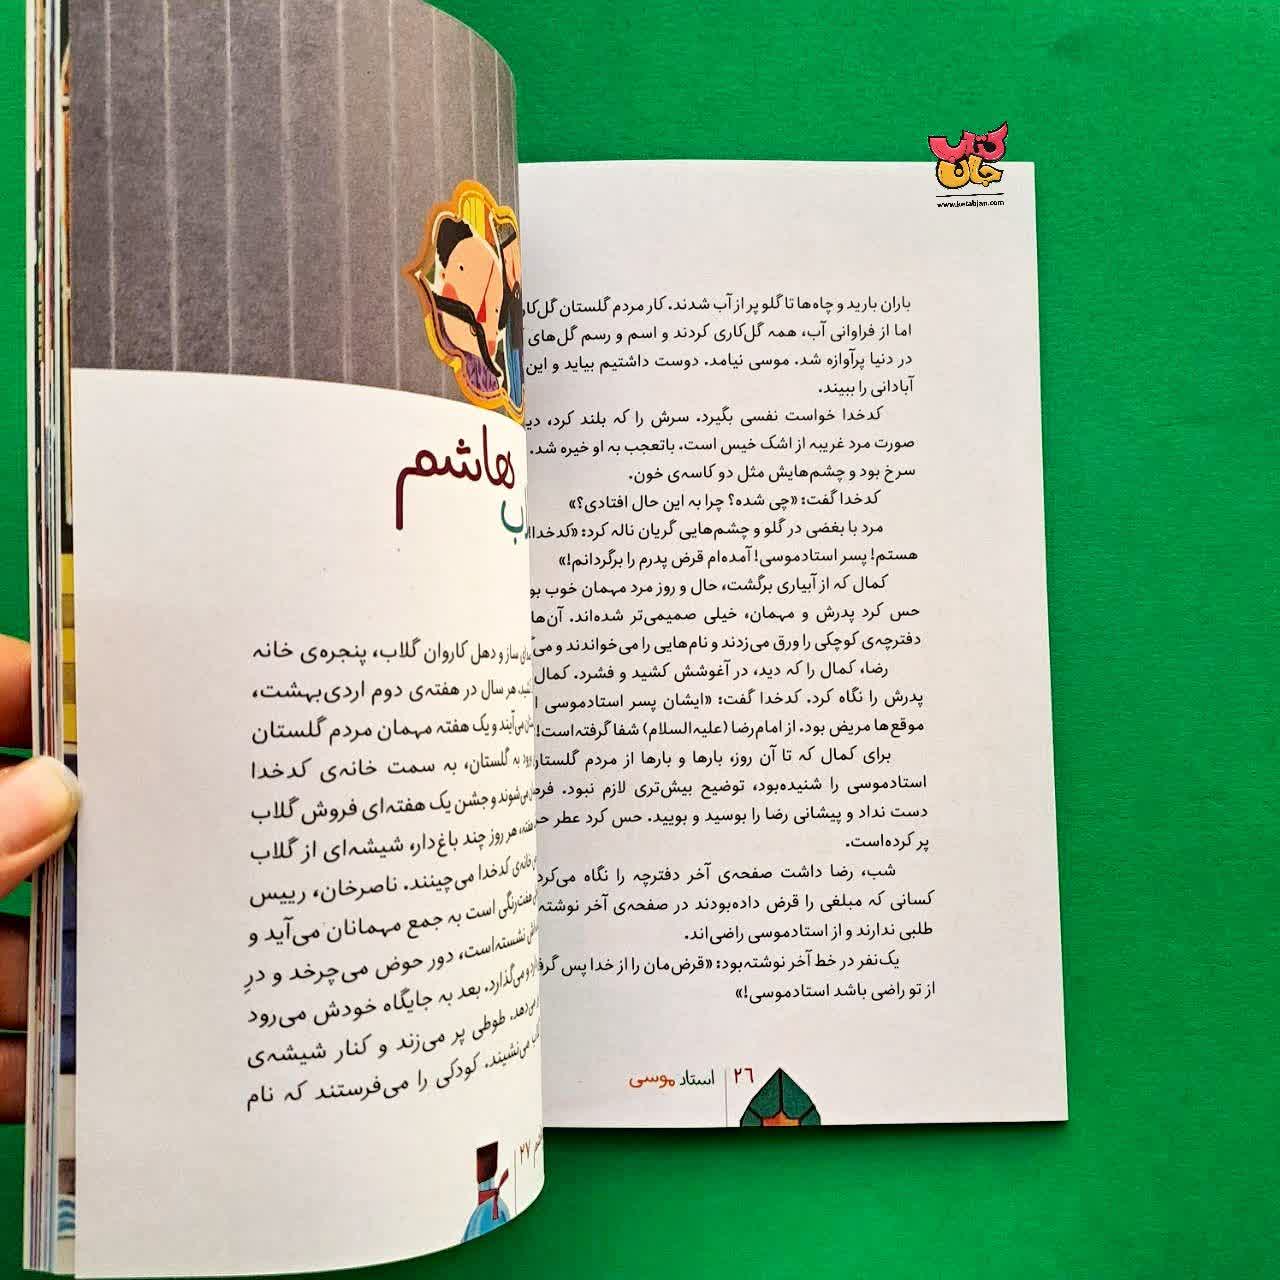 کتاب جان
www.ketabjan.com
باران بارید و چاه‌ها تا گلو پر از آب شدند. کار مردم گلستان گل‌کار
اما از فراوانی آب، همه گل‌کاری کردند و اسم و رسم گل‌های
در دنیا پرآوازه شد. موسی نیامد. دوست داشتیم بیاید و این
آبادانی را ببیند.
کدخدا خواست نفسی بگیرد. سرش را که بلند کرد، دید
صورت مرد غریبه از اشک خیس است. باتعجب به او خیره شد.
سرخ بود و چشم‌هایش مثل دو کاسه‌ی خون.
کدخدا گفت: «چی شده؟ چرا به این حال افتادی؟»
مرد با بغضی در گلو و چشم‌هایی گریان ناله کرد: «کدخدا!
هستم! پسر استادموسی! آمده‌ام قرض پدرم را برگردانم!»
کمال که از آبیاری برگشت، حال و روز مرد مهمان خوب بو
حس کرد پدرش و مهمان، خیلی صمیمی‌تر شده‌اند. آن‌ها
دفترچه‌ی کوچکی را ورق می‌زدند و نام‌هایی را می‌خواندند و می‌
رضا، کمال را که دید، در آغوشش کشید و فشرد. کمال
پدرش را نگاه کرد. کدخدا گفت: «ایشان پسر استادموسی ا
موقع‌ها مریض بود. از امام‌رضا (علیه‌السلام) شفا گرفته‌است!
برای کمال که تا آن روز، بارها و بارها از مردم گلستان
استادموسی را شنیده‌بود، توضیح بیش‌تری لازم نبود. فرص
دست نداد و پیشانی رضا را بوسید و بویید. حس کرد عطر حر
پر کرده‌است.
شب، رضا داشت صفحه‌ی آخر دفترچه را نگاه می‌کرد
کسانی که مبلغی را قرض داده‌بودند در صفحه‌ی آخر نوشته
طلبی ندارند و از استادموسی راضی‌اند.
یک‌نفر در خط آخر نوشته‌بود: «قرض‌مان را از خدا پس گرفـ
از تو راضی باشد استادموسی!»
۲۶ استاد موسی
هاشم
ساز و دهل کاروان گلاب، پنجره‌ی خانه
هر سال در هفته‌ی دوم اردی‌بهشت،
می‌آیند و یک هفته مهمان مردم گلستان
به گلستان، به سمت خانه‌ی کدخدا
می‌شوند و جشن یک هفته‌ای فروش گلاب
هفته، هر روز چند باغ‌دار، شیشه‌ای از گلاب
خانه‌ی کدخدا می‌چینند. ناصرخان، رییس
هفت‌رنگی است به جمع مهمانان می‌آید و
نشسته‌است، دور حوض می‌چرخد و درِ
و می‌گذارد. بعد به جایگاه خودش می‌رود
می‌دهد. طوطی پر می‌زند و کنار شیشه‌ی
می‌نشیند. کودکی را می‌فرستند که نام
۲۷